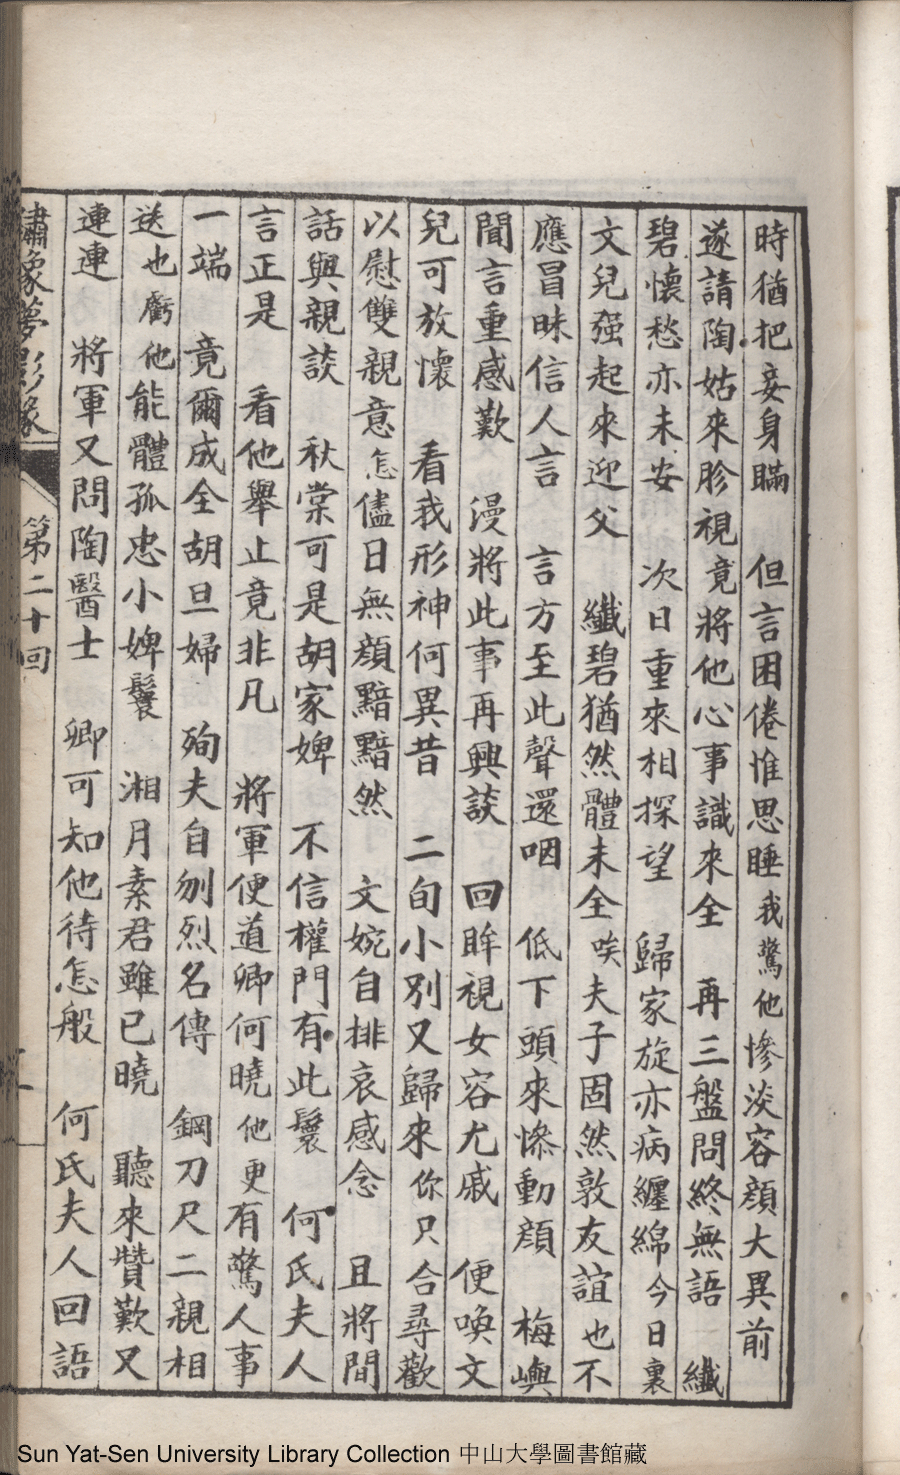 時猶把妾身瞞　但言困倦惟思睡我驚他慘淡容顏大異前
遂請陶姑來胗視竟將他心事識來全　再三盤問終無語　纖
碧懷愁亦未安　次日重來相探望　歸家旋亦病纏綿今日裏
文兒强起來迎父　纖碧猶然體未全唉夫子固然敦友誼也不
應冒昧信人言　言方至此聲還咽　低下頭來慘動顏　梅嶼
聞言重感歎　漫將此事再興談　回眸視女容尤戚　便喚文
兒可放懷　看我形神何異昔　二旬小別又歸來你只合尋歡
以慰雙親意怎儘日無顏黯黯然　文婉自排哀感念　且將閒
話與親談　秋棠可是胡家婢　不信權門有此鬟　何氏夫人
言正是　看他舉止竟非凡　將軍便道卿何曉他更有驚人事
一端　竟爾成全胡旦婦　殉夫自刎烈名傳　鋼刀尺二親相
送也虧他能體孤忠小婢鬟　湘月素君雖已曉　聽來贊歎又
連連　將軍又問陶醫士　卿可知他待怎般　何氏夫人回語
繡像夢影緣　第二十回
Sun Yat-Sen University Library Collection 中山大學圖書館藏